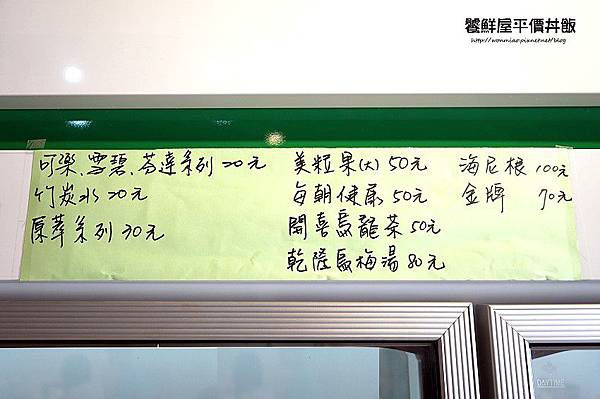 饕鮮屋平價丼飯
http://wonmiao.pixnet.net/blog
可樂、雪碧、芬達系列 20元
竹炭水 20元
原萃系列 30元
美粒果(大) 50元
每朝健康 50元
開喜烏龍茶 50元
乾隆烏梅湯 80元
海尼根 100元
金牌 70元
DAYTIME